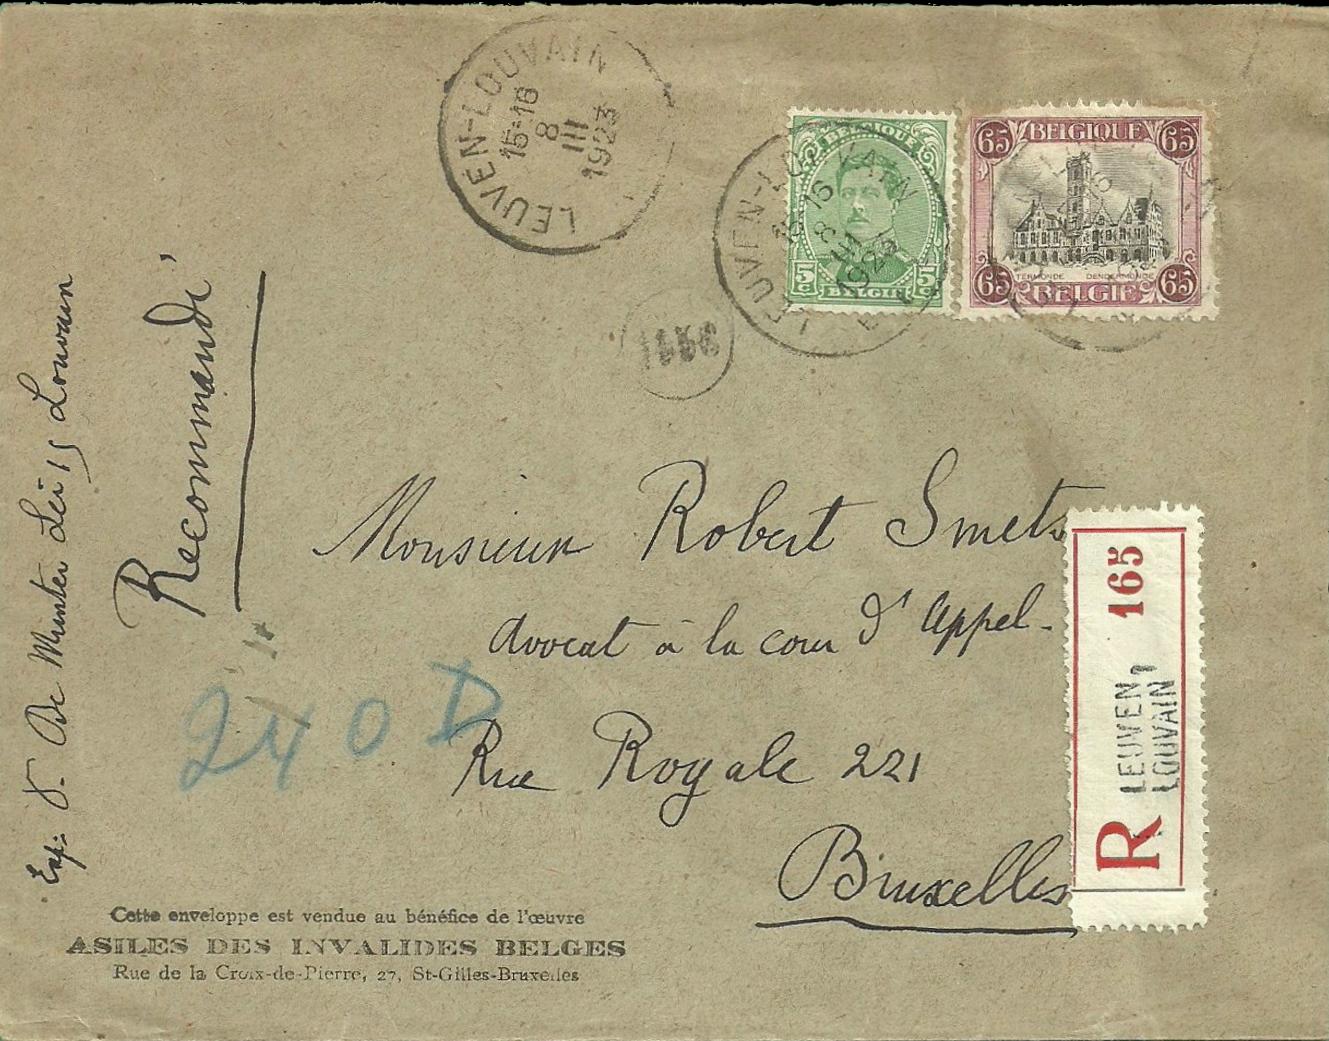 LEUVEN-LOUVAIN
15-16
8
III
1923
BELGIQUE
5c 5c
BELGIE
LEUVEN-LOUVAIN
15-16
8
III
1923
65 BELGIQUE 65
TERMONDE DENDERMONDE
65 BELGIE 65
Recommandé
Exp: De Munter Lei 15 Louvain
Monsieur Robert Smets
avocat à la cour d'Appel.
Rue Royale 221
Bruxelles
240 D
R LEUVEN 1 165
LOUVAIN
Cette enveloppe est vendue au bénéfice de l'œuvre
ASILES DES INVALIDES BELGES
Rue de la Croix-de-Pierre, 27, St-Gilles-Bruxelles